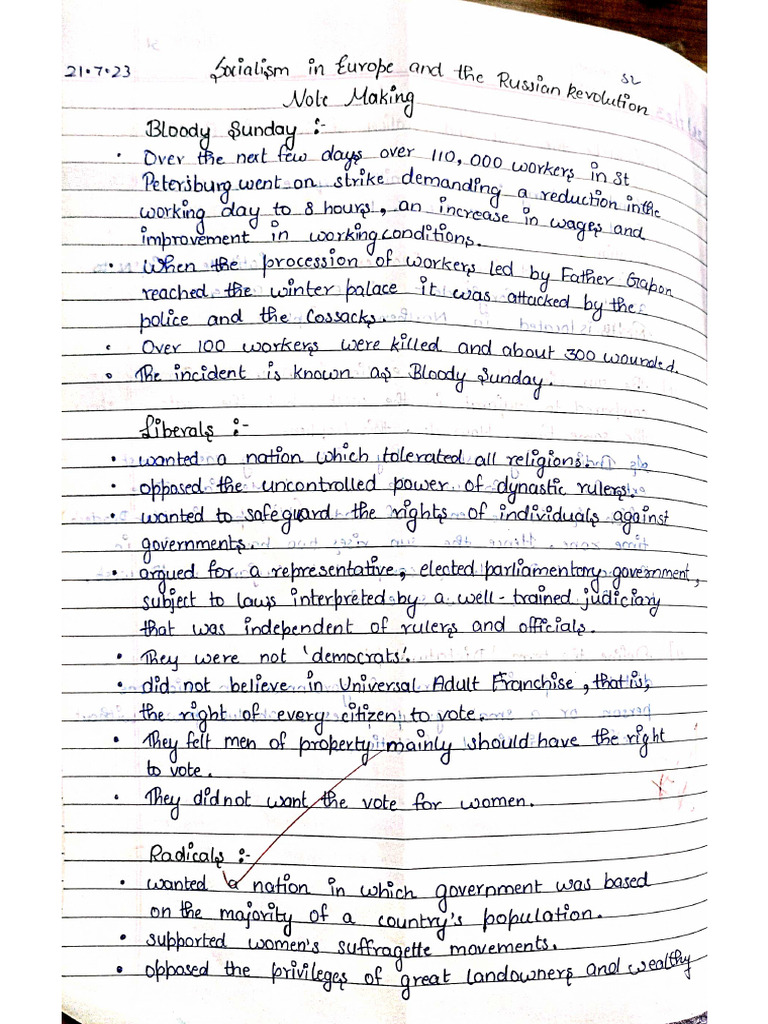 21.7.23 Socialism in Europe and the Russian Revolution
Note Making
Bloody Sunday :-
• Over the next few days over 110,000 workers in St
Petersburg went on strike demanding a reduction in the
working day to 8 hours, an increase in wages and
improvement in working conditions.
• When the procession of workers led by Father Gapon
reached the winter palace it was attacked by the
police and the Cossacks.
• Over 100 workers were killed and about 300 wounded.
• The incident is known as Bloody Sunday.
Liberals :-
• wanted a nation which tolerated all religions.
• opposed the uncontrolled power of dynastic rulers.
• wanted to safeguard the rights of individuals against
governments.
• argued for a representative, elected parliamentary government,
subject to laws interpreted by a well-trained judiciary
that was independent of rulers and officials.
• They were not 'democrats'.
• did not believe in Universal Adult Franchise, that is,
the right of every citizen to vote.
• They felt men of property mainly should have the right
to vote.
• They did not want the vote for women.
Radicals :-
• wanted a nation in which government was based
on the majority of a country's population.
• supported women's suffragette movements.
• opposed the privileges of great landowners and wealthy